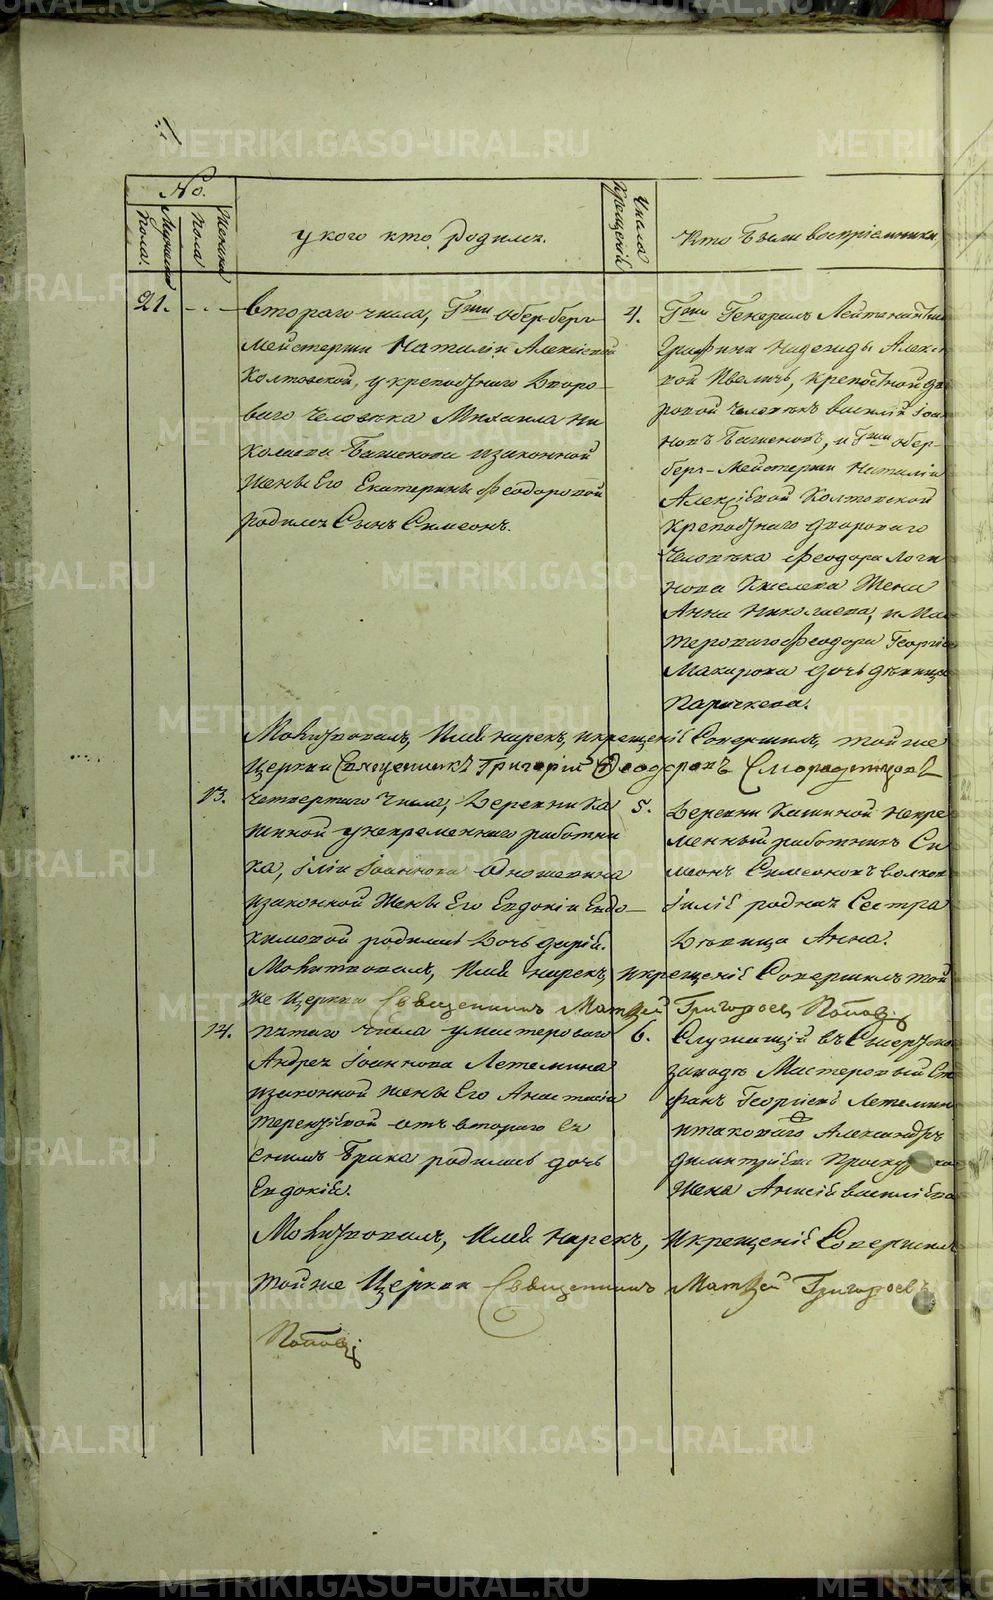 METRIKI.GASO-URAL.RU
№.
Мужеска Пола.
Женска Пола
у кого кто родился.
Числа Крещенiй
Кто были воспрiемники.
21.
втораго числа, Гжи обер-берг-
мейстерши Наталiи Алексiевой
Колтовской, у крепостнаго дворо-
ваго человека Михаила Ни
колаева Баженова и законной
жены Его Екатерины Феодоровой
родился Сынъ Симеонъ.
4.
Гжи Генералъ Лейтенантши
Графини Надежды Алексе
вой Ивеличь, крепостной дво
ровой человекъ василiй Iоан
новъ Баженовъ, и Гжи обер-
берг-Мейстерши Наталiи
Алексiевой Колтовской
крепостнаго двороваго
человека Феодора Логи
нова Киселева Жена
Анна Николаева, и Мас
тероваго Феодора Георгiева
Макарова дочь девица
Параскева.
Молитвовалъ, Имя нарекъ, и крещенiе Совершилъ, той же
Церкви Священникъ Григорiй Феодоровъ Смородинцовъ
13.
четвертаго Числа, Деревни Ка
шиной у непременнаго работни
ка, Iлiи Iоаннова
и законной Жены Его Евдокiи Евдо-
кимовой родилась Дочь Дарiя.
5.
Деревни Кашиной Непре
менный работникъ Си
меонъ Симеоновъ
Iилiи родная Сестра
Девица Анна.
Молитвовалъ, Имя нарекъ, и крещенiе Совершилъ той
же Церкви Священникъ Матвей Григорьевъ Поповъ
14.
пятаго числа у мастероваго
Андрея Iоаннова Летемина
и законной жены Его Анастасiи
Терентьевой отъ втораго ея
с нимъ брака родилась дочь
Евдокiя.
6.
Служащiй въ Сысертско
заводе Мастеровый Сте
фанъ Георгiевъ Летемин
и таковаго Александръ
Димитрiева
Жена Анисiя василiева
Молитвовалъ, Имя нарекъ, и крещенiе Совершилъ
той же Церкви Священникъ Матвей Григорьевъ
Поповъ